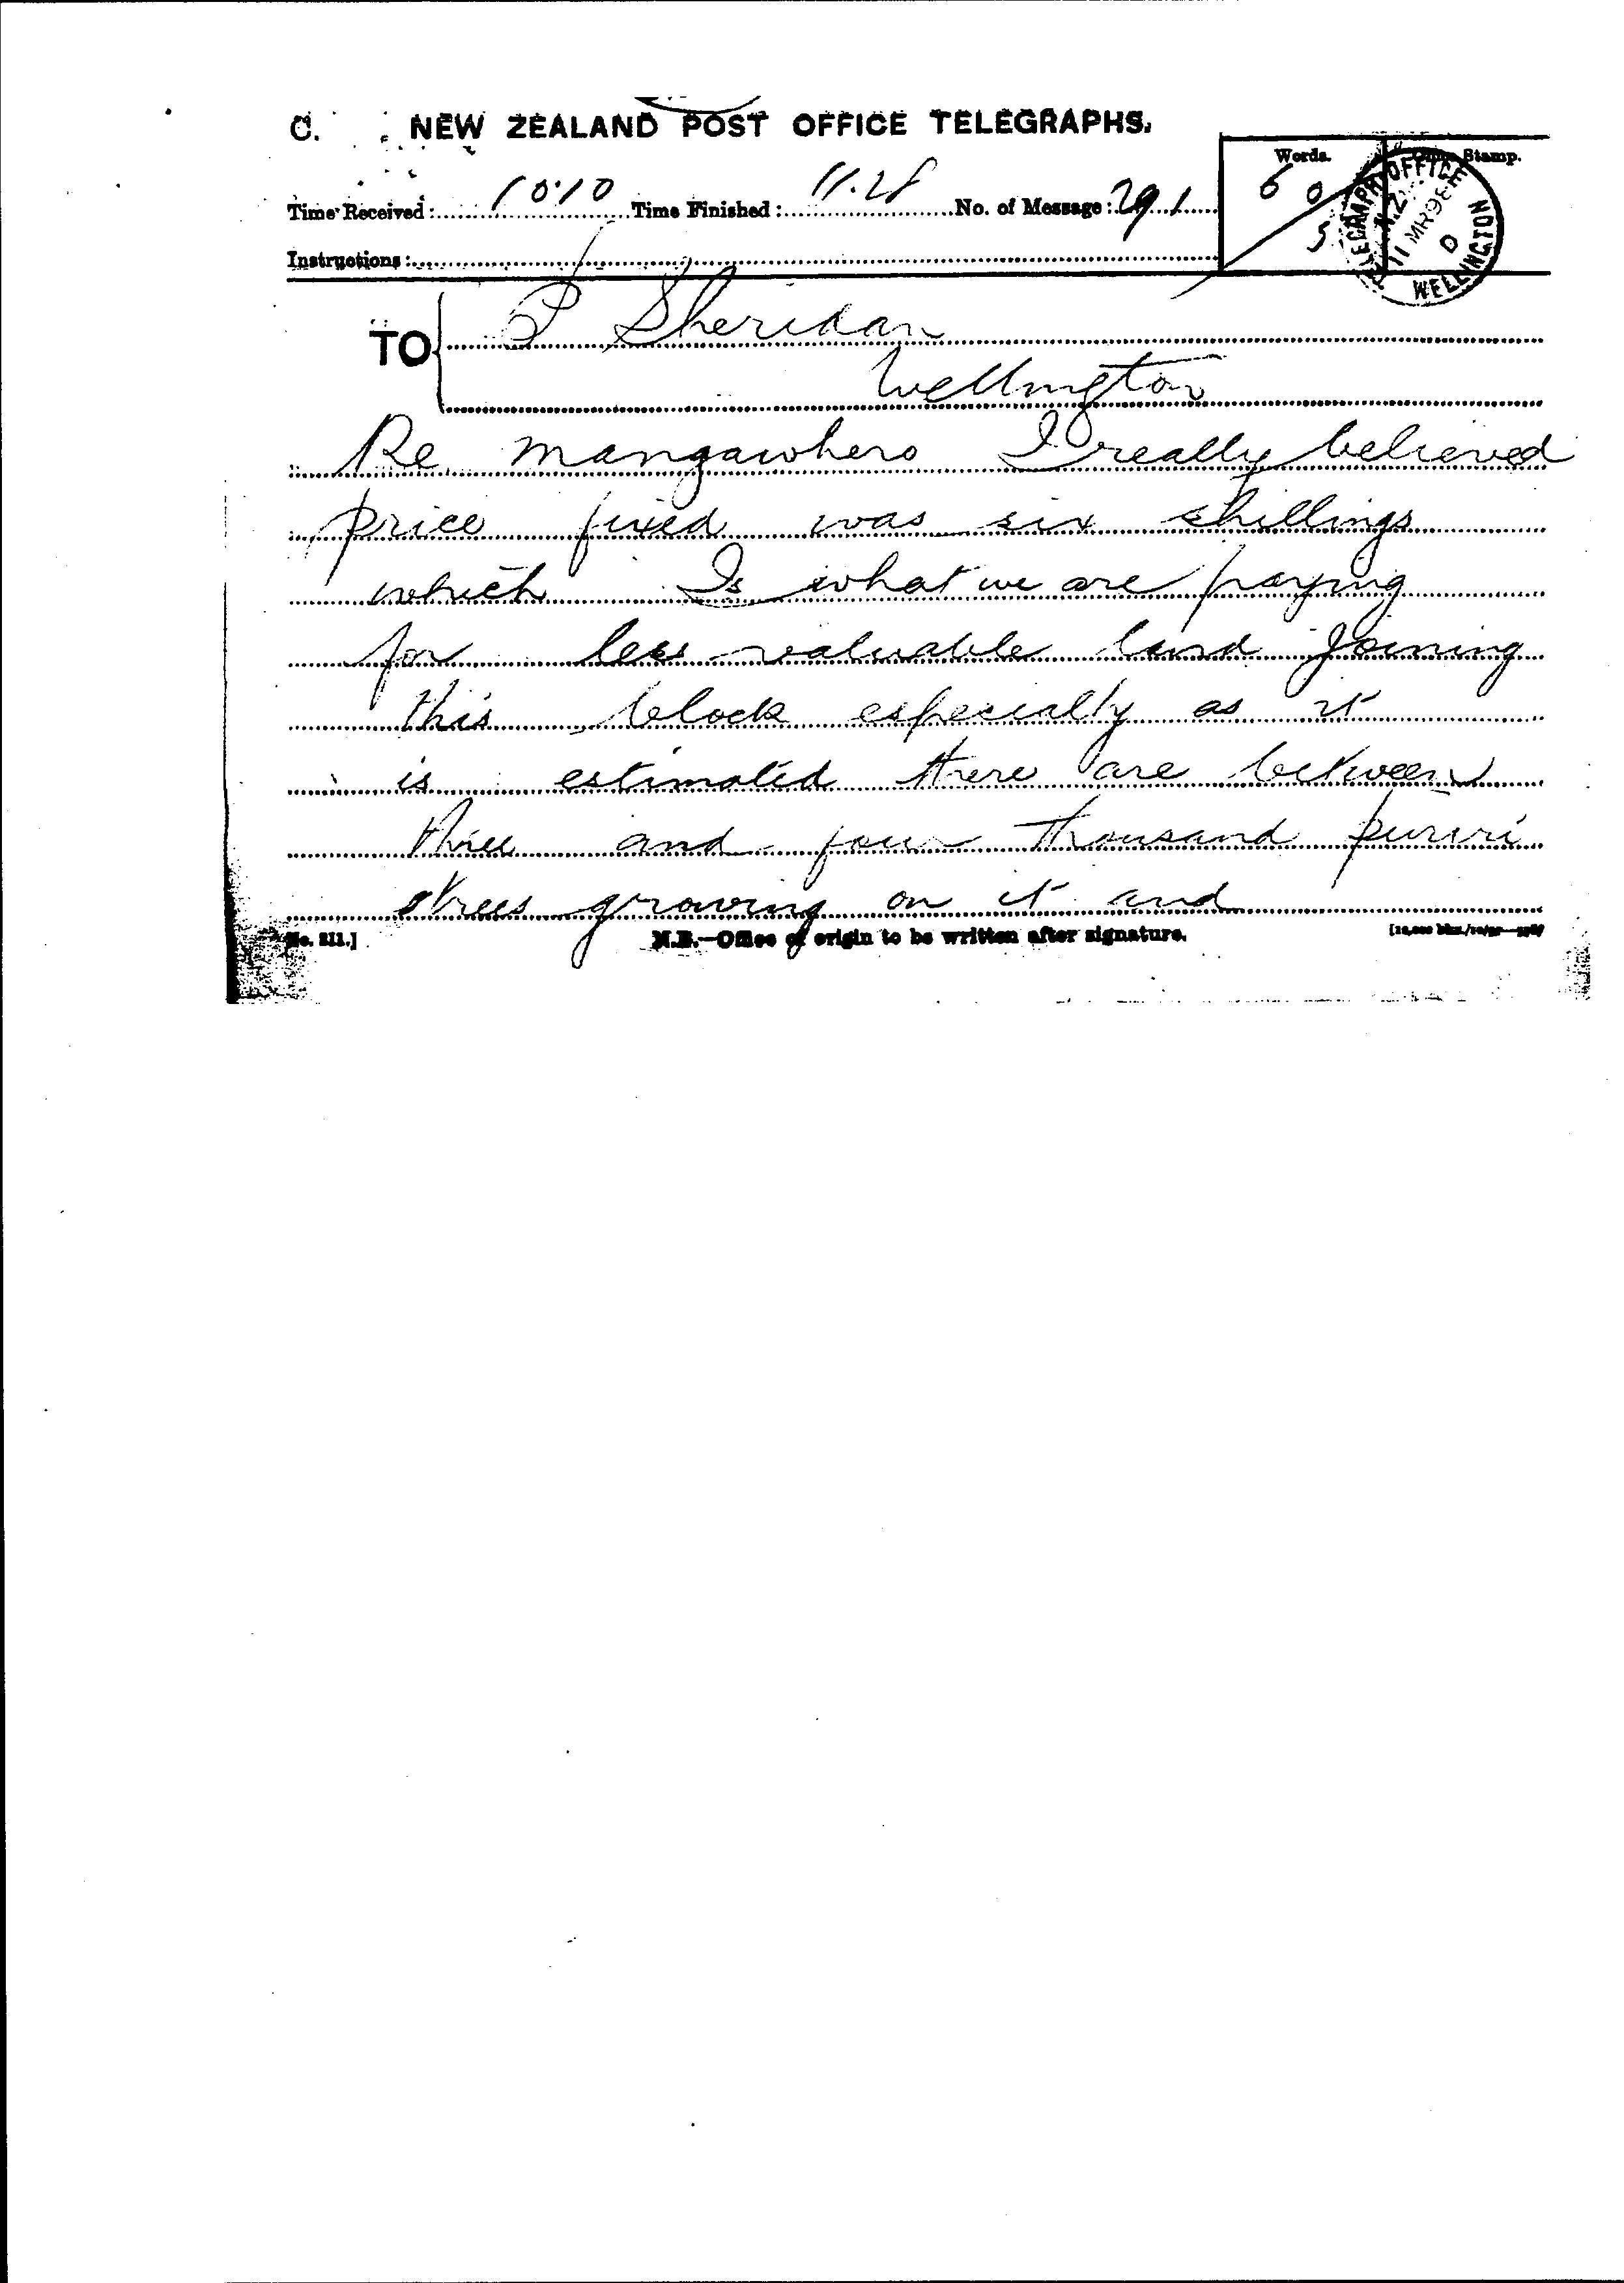 C. NEW ZEALAND POST OFFICE TELEGRAPHS.
Words. Stamp.
Time Received: 10.10 Time Finished: 11.28 No. of Message: 291
60
5
TELEGRAPH OFFICE N.Z. 11 MR 98 D WELLINGTON
Instructions:
TO P Sheridan
Wellington
Re Mangawhero I really believed
price fixed was six shillings
which Is what we are paying
for less valuable land Joining
this block especially as it
is estimated there are between
three and four thousand puriri
trees growing on it and
No. 211.] N.B.—Office of origin to be written after signature.